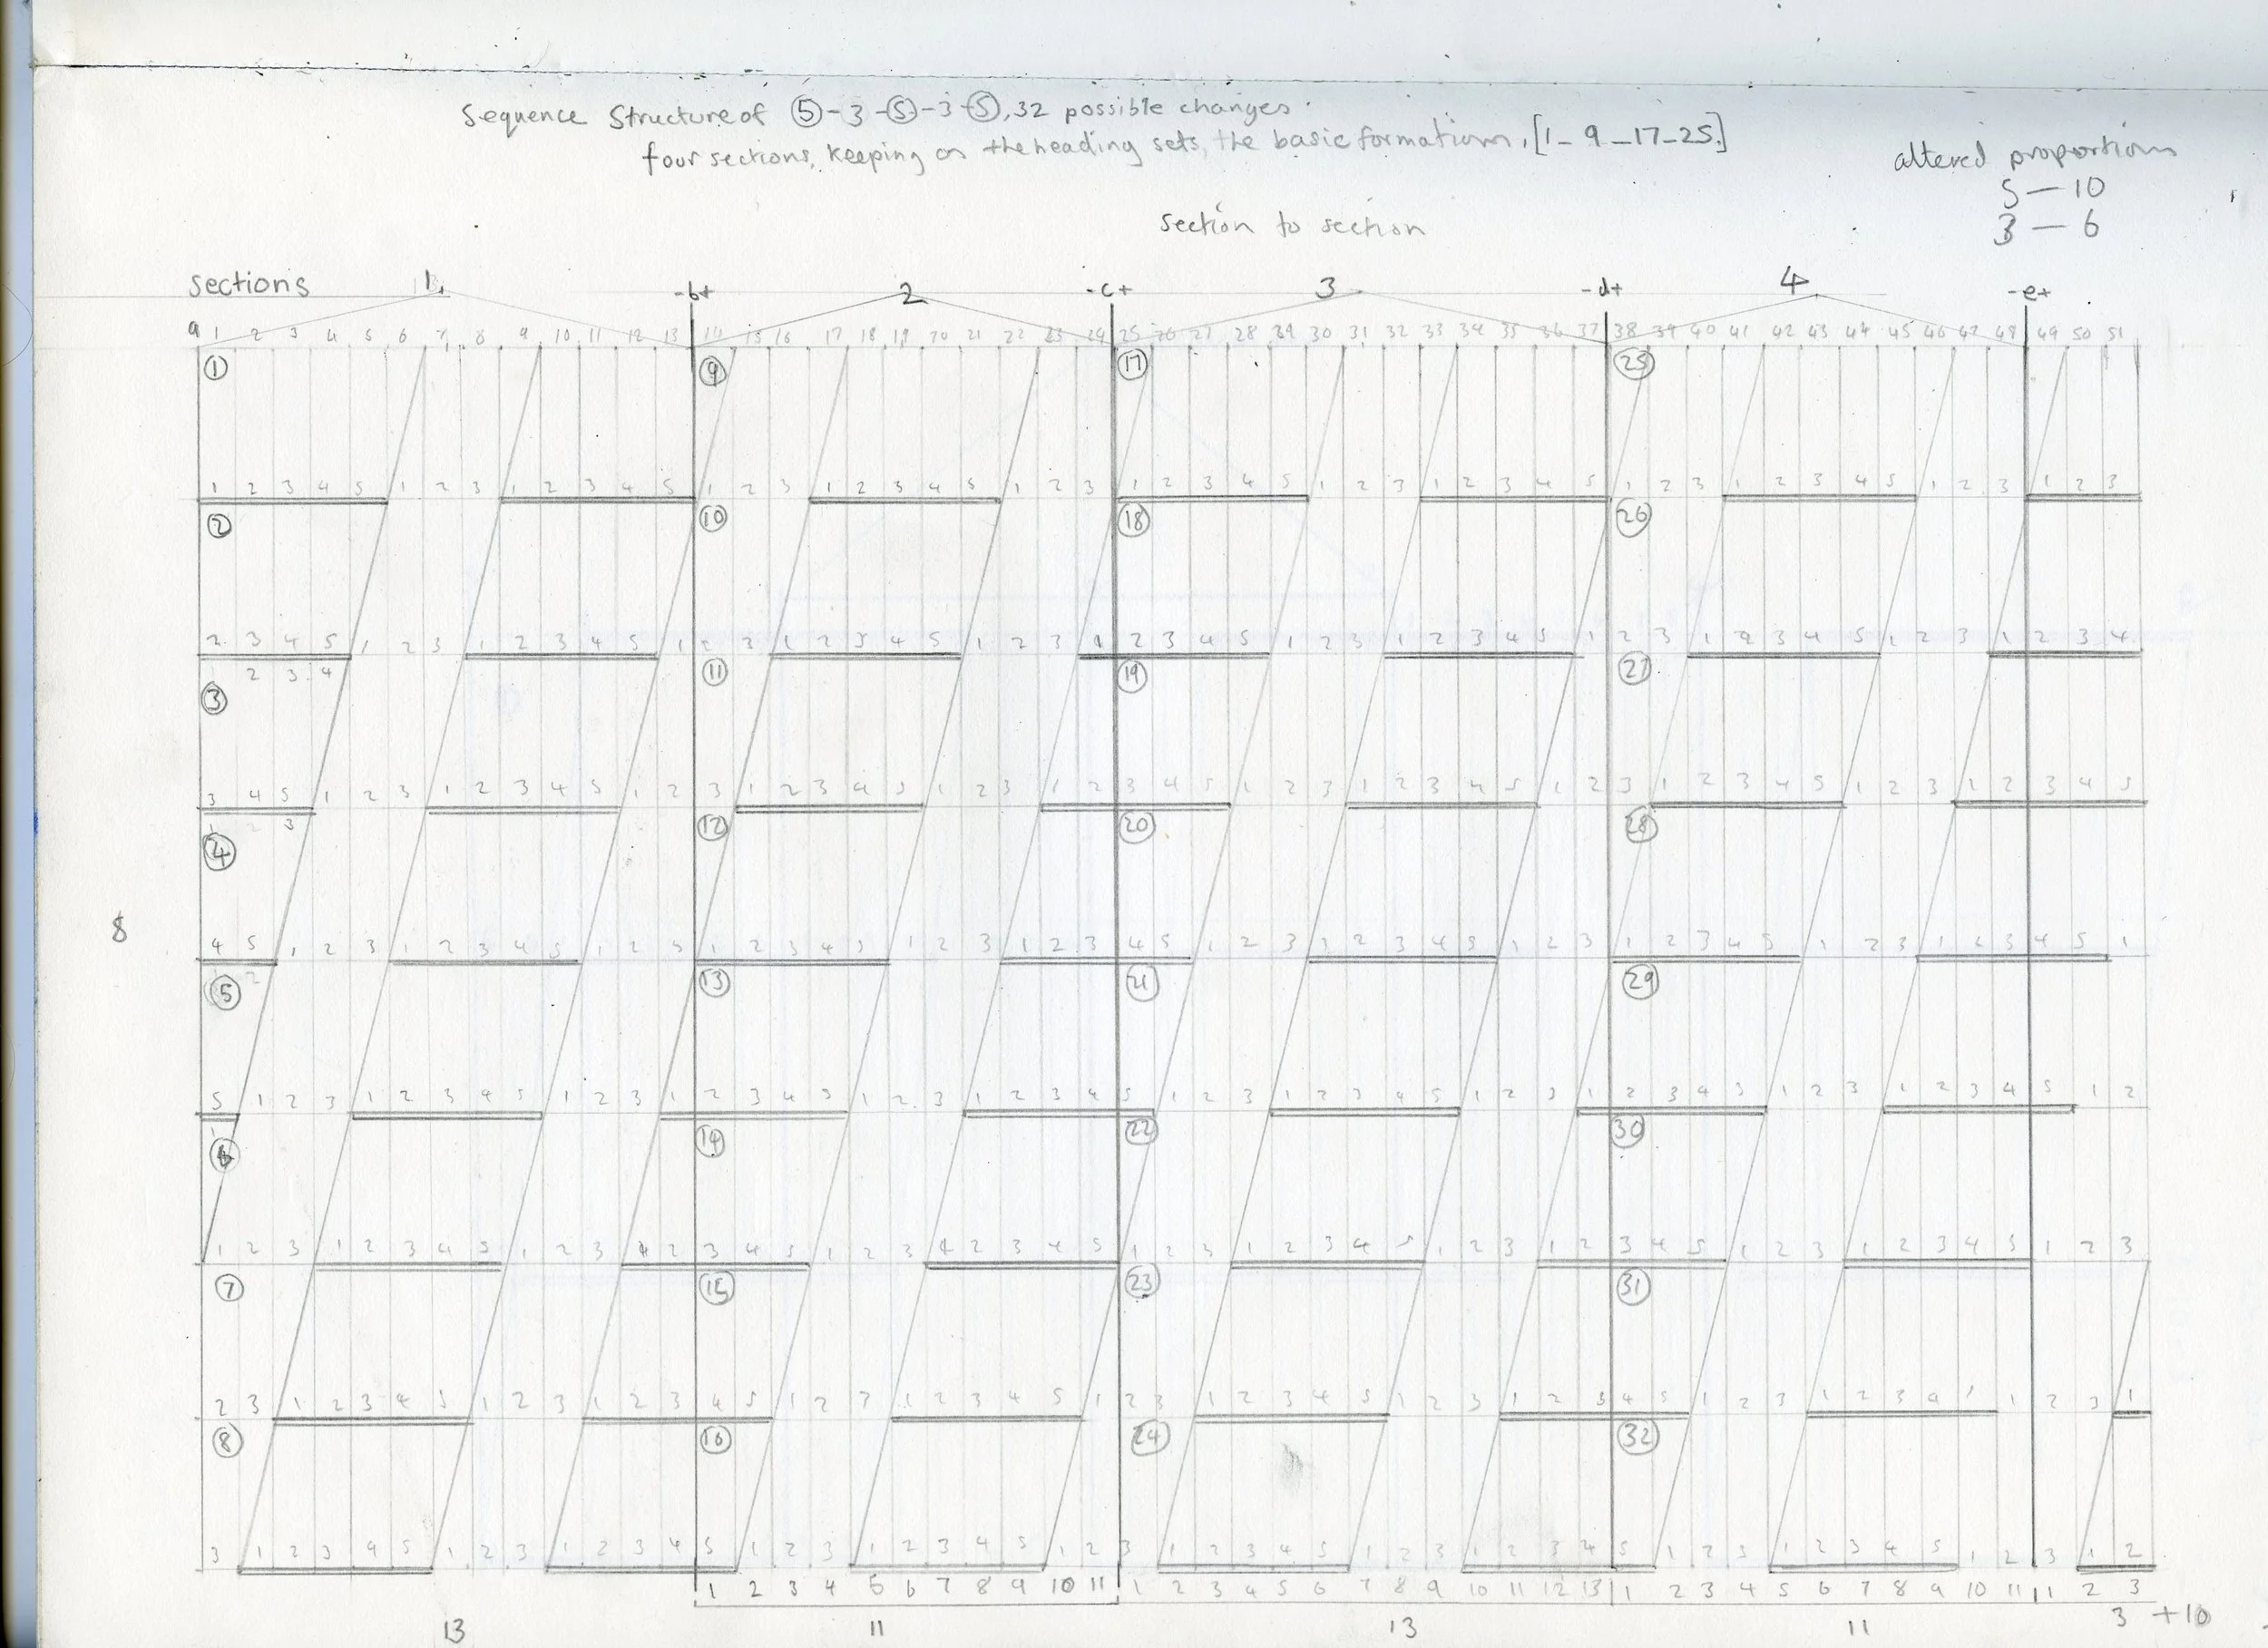 Sequence Structure of ⑤-3-⑤-3-⑤, 32 possible changes.
four sections, keeping on the heading sets, the basic formations, [1_9_17_25.]
altered proportions
5 — 10
3 — 6
section to section
sections 1. -b+ 2 -c+ 3 -d+ 4 -e+
a 1 2 3 4 5 6 7 8 9 10 11 12 13 14 15 16 17 18 19 20 21 22 23 24 25 26 27 28 29 30 31 32 33 34 35 36 37 38 39 40 41 42 43 44 45 46 47 48 49 50 51
① ⑨ ⑰ ㉕
1 2 3 4 5 1 2 3 1 2 3 4 5 1 2 3 1 2 3 4 5 1 2 3 1 2 3 4 5 1 2 3 1 2 3 4 5 1 2 3 1 2 3 4 5 1 2 3 1 2 3
② ⑩ ⑱ ㉖
2 3 4 5 1 2 3 1 2 3 4 5 1 2 3 1 2 3 4 5 1 2 3 1 2 3 4 5 1 2 3 1 2 3 4 5 1 2 3 1 2 3 4 5 1 2 3 1 2 3 4
2 3 4
③ ⑪ ⑲ ㉗
3 4 5 1 2 3 1 2 3 4 5 1 2 3 1 2 3 4 5 1 2 3 1 2 3 4 5 1 2 3 1 2 3 4 5 1 2 3 1 2 3 4 5 1 2 3 1 2 3 4 5
1 2 3
④ ⑫ ⑳ ㉘
8
4 5 1 2 3 1 2 3 4 5 1 2 3 1 2 3 4 5 1 2 3 1 2 3 4 5 1 2 3 1 2 3 4 5 1 2 3 1 2 3 4 5 1 2 3 1 2 3 4 5 1
⑤ ⑬ ㉑ ㉙
5 1 2 3 1 2 3 4 5 1 2 3 1 2 3 4 5 1 2 3 1 2 3 4 5 1 2 3 1 2 3 4 5 1 2 3 1 2 3 4 5 1 2 3 1 2 3 4 5 1 2
⑥ ⑭ ㉒ ㉚
1 2 3 1 2 3 4 5 1 2 3 1 2 3 4 5 1 2 3 1 2 3 4 5 1 2 3 1 2 3 4 5 1 2 3 1 2 3 4 5 1 2 3 1 2 3 4 5 1 2 3
⑦ ⑮ ㉓ ㉛
2 3 1 2 3 4 5 1 2 3 1 2 3 4 5 1 2 3 1 2 3 4 5 1 2 3 1 2 3 4 5 1 2 3 1 2 3 4 5 1 2 3 1 2 3 4 5 1 2 3 1
⑧ ⑯ ㉔ ㉜
3 1 2 3 4 5 1 2 3 1 2 3 4 5 1 2 3 1 2 3 4 5 1 2 3 1 2 3 4 5 1 2 3 1 2 3 4 5 1 2 3 1 2 3 4 5 1 2 3 1 2
1 2 3 4 5 6 7 8 9 10 11 1 2 3 4 5 6 7 8 9 10 11 12 13 1 2 3 4 5 6 7 8 9 10 11 1 2 3
13 11 13 11 3 +10